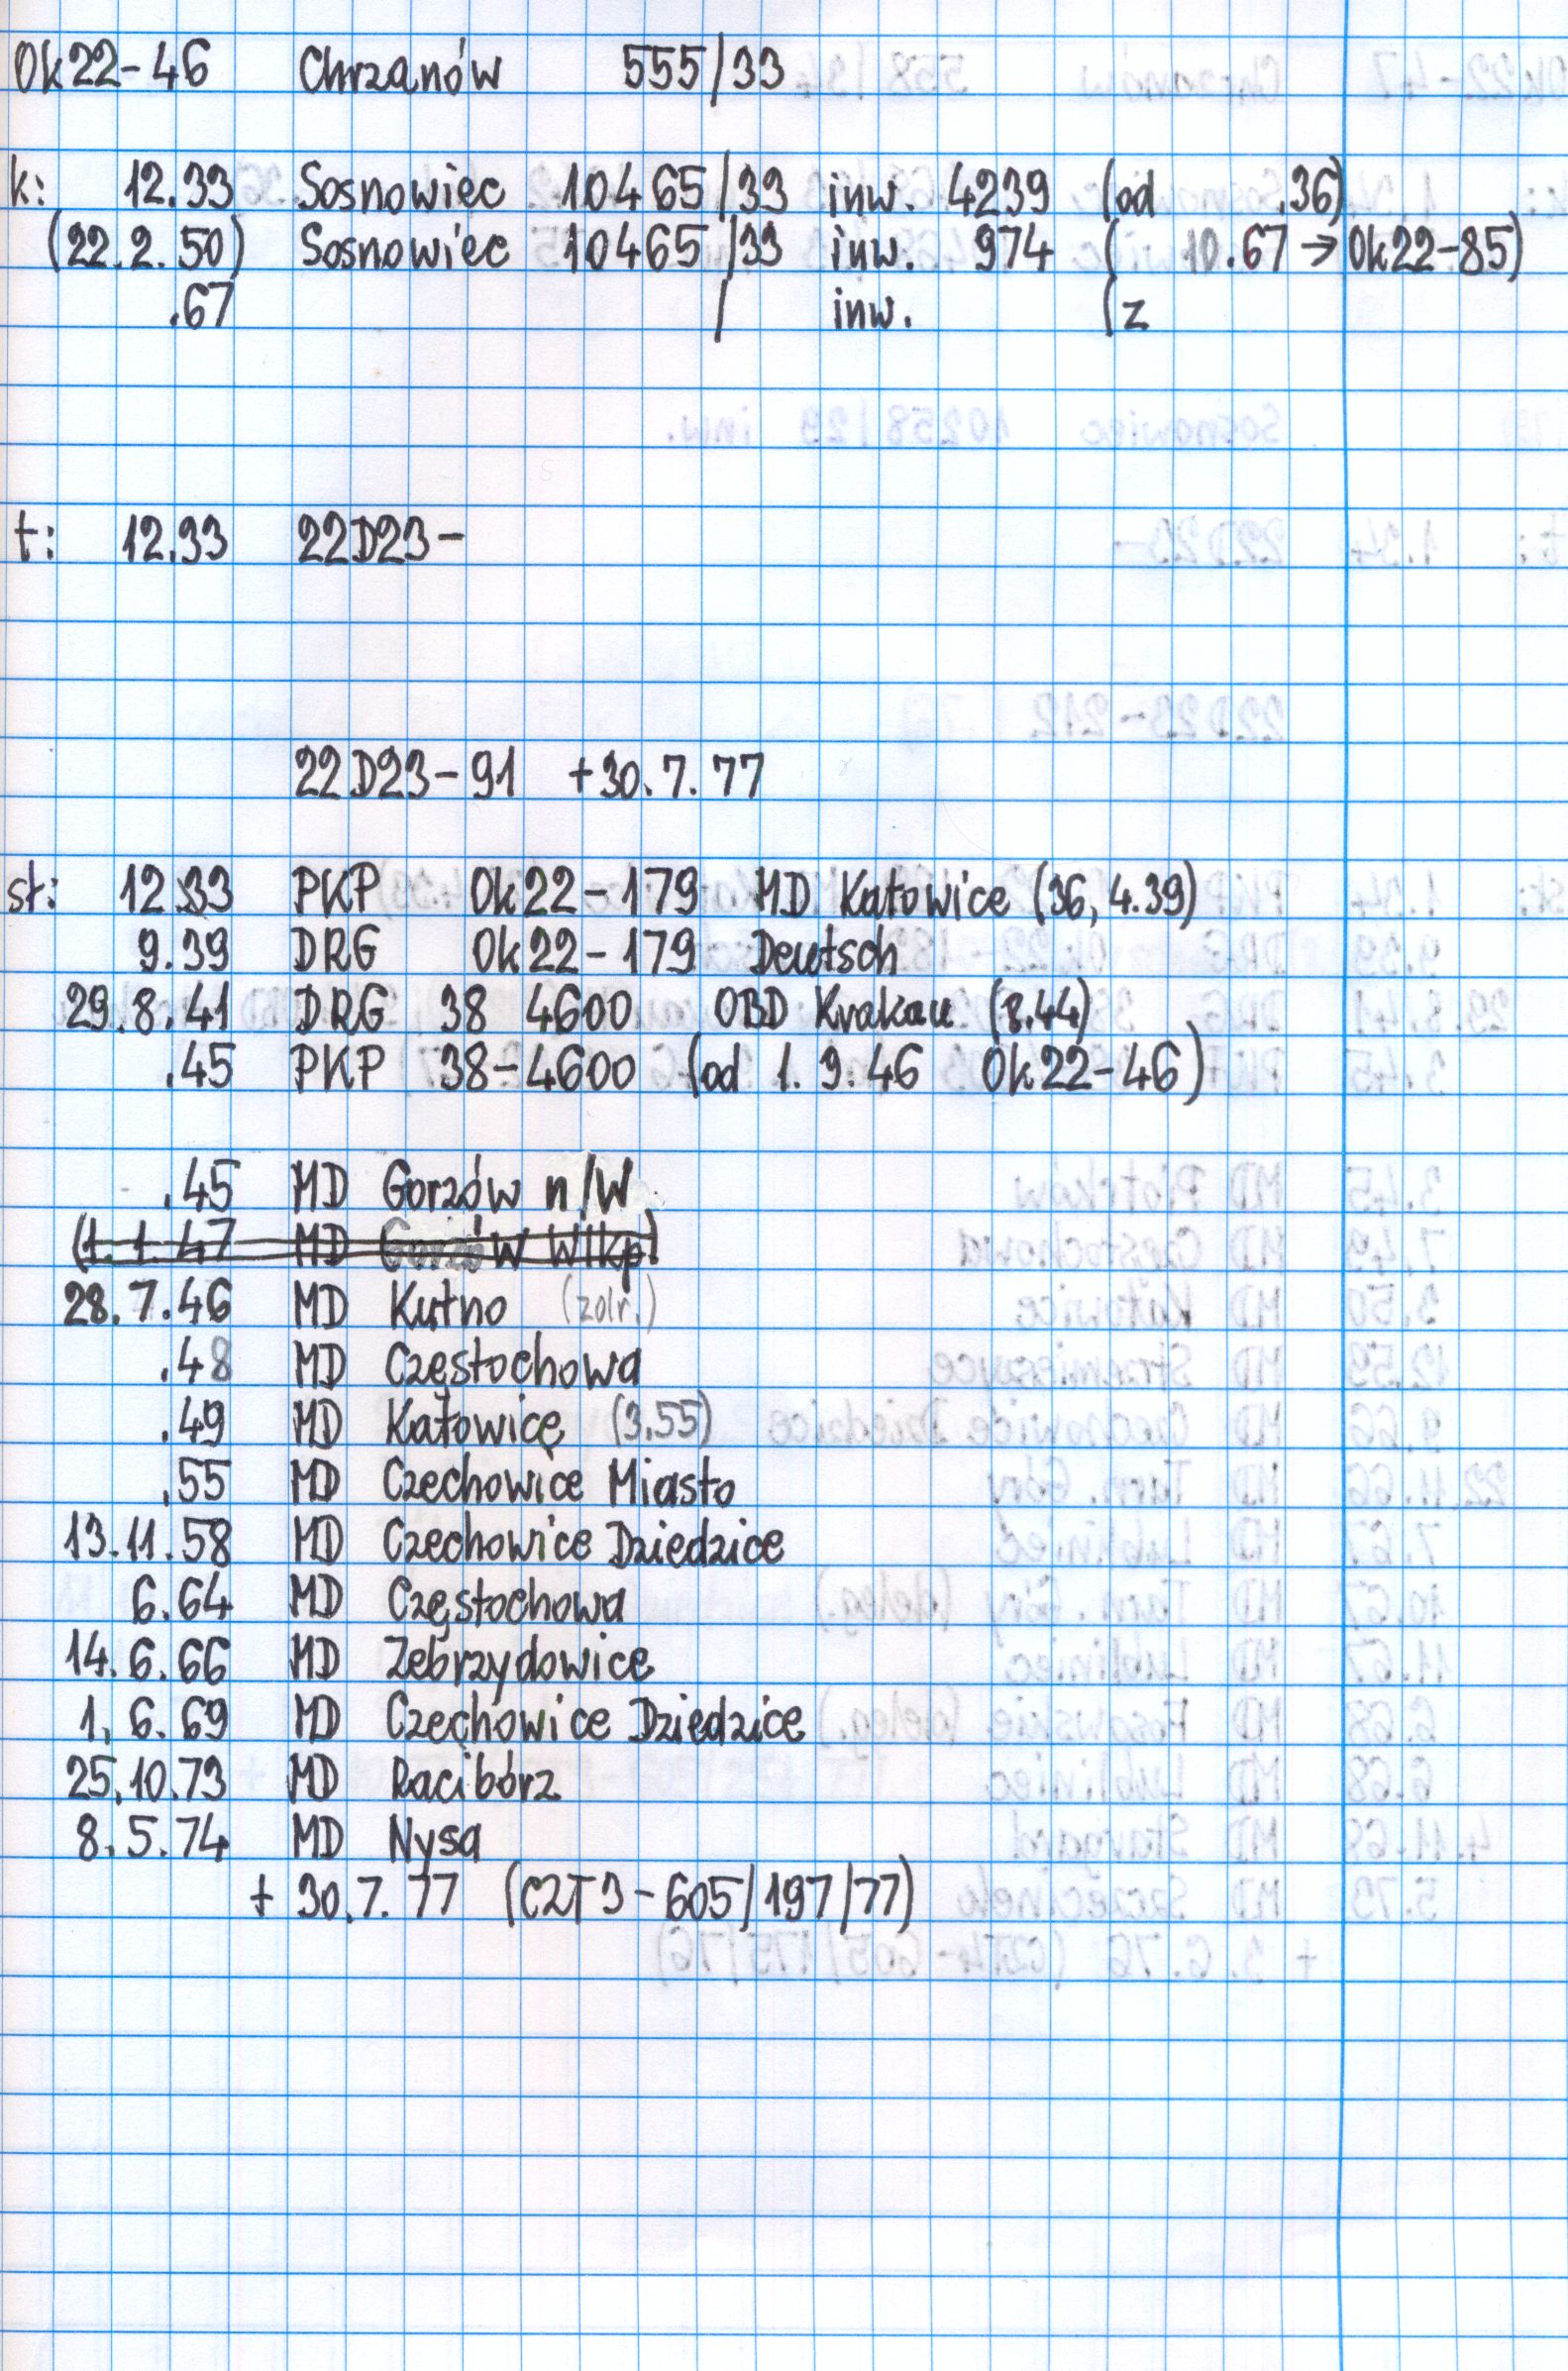 Ok22-46 Chrzanów 555/33
k: 12.33 Sosnowiec 10465/33 inw. 4239 (od .36)
(22.2.50) Sosnowiec 10465/33 inw. 974 ( 10.67 → Ok22-85)
.67 / inw. (z
t: 12.33 22D23-
22D23-91 +30.7.77
sł: 12.33 PKP Ok22-179 MD Katowice (36, 4.39)
9.39 DRG Ok22-179 Deutsch
29.8.41 DRG 38 4600 OBD Krakau (8.44)
.45 PKP 38-4600 (od 1.9.46 Ok22-46)
.45 MD Gorzów n/W
(1.1.47 MD Gorzów Wlkp)
28.7.46 MD Kutno (zdr.)
.48 MD Częstochowa
.49 MD Katowice (3.55)
.55 MD Czechowice Miasto
13.11.58 MD Czechowice Dziedzice
6.64 MD Częstochowa
14.6.66 MD Zebrzydowice
1.6.69 MD Czechowice Dziedzice
25.10.73 MD Racibórz
8.5.74 MD Nysa
+ 30.7.77 (CZT3-605/197/77)